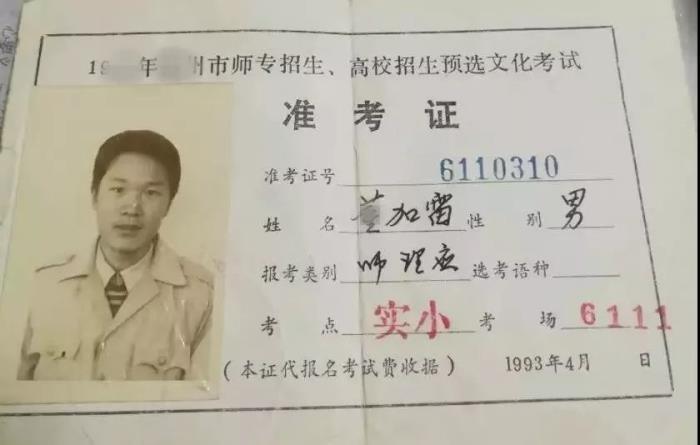 19 年 州市师专招生、高校招生预选文化考试
准考证
准考证号 6110310
姓名 加雷 性别 男
报考类别 师理 选考语种
考点 实小 考场 6111
（本证代报名考试费收据） 1993年4月 日